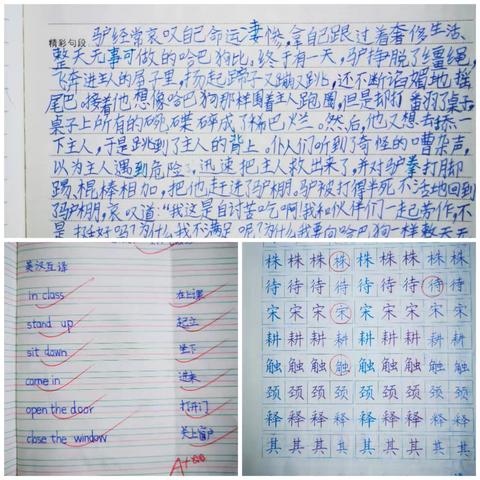 驴经常哀叹自己命运凄惨,拿自己跟过着奢侈生活、
精彩句段
整天无事可做的哈巴狗比,终于有一天,驴挣脱了缰绳,
飞奔进主人的房子里,扬起蹄子又蹦又跳,还不断谄媚地摇
尾巴。接着他想像哈巴狗那样围着主人跑圈,但是却打翻了桌子
桌子上所有的碗碟碎成了稀巴烂。然后,他又想去舔一
下主人,于是跳到了主人的背上。仆人们听到了奇怪的嘈杂声,
以为主人遇到危险,迅速把主人救出来了,并对驴拳打脚
踢、棍棒相加,把他赶进了驴棚。驴被打得半死不活地回到
了驴棚,哀叹道:“我这是自讨苦吃啊!我和伙伴们一起劳作,不
是挺好吗?为什么我不满足呢?为什么我要向哈巴狗一样整天无
英汉互译
in class 在上课
stand up 起立
sit down 坐下
come in 进来
open the door 打开门
close the window 关上窗户
A+
株 株 株 株 株 株 株 株
待 待 待 待 待 待 待 待
宋 宋 宋 宋 宋 宋 宋 宋
耕 耕 耕 耕 耕 耕 耕 耕
触 触 触 触 触 触 触 触
颈 颈 颈 颈 颈 颈 颈 颈
释 释 释 释 释 释 释 释
其 其 其 其 其 其 其 其